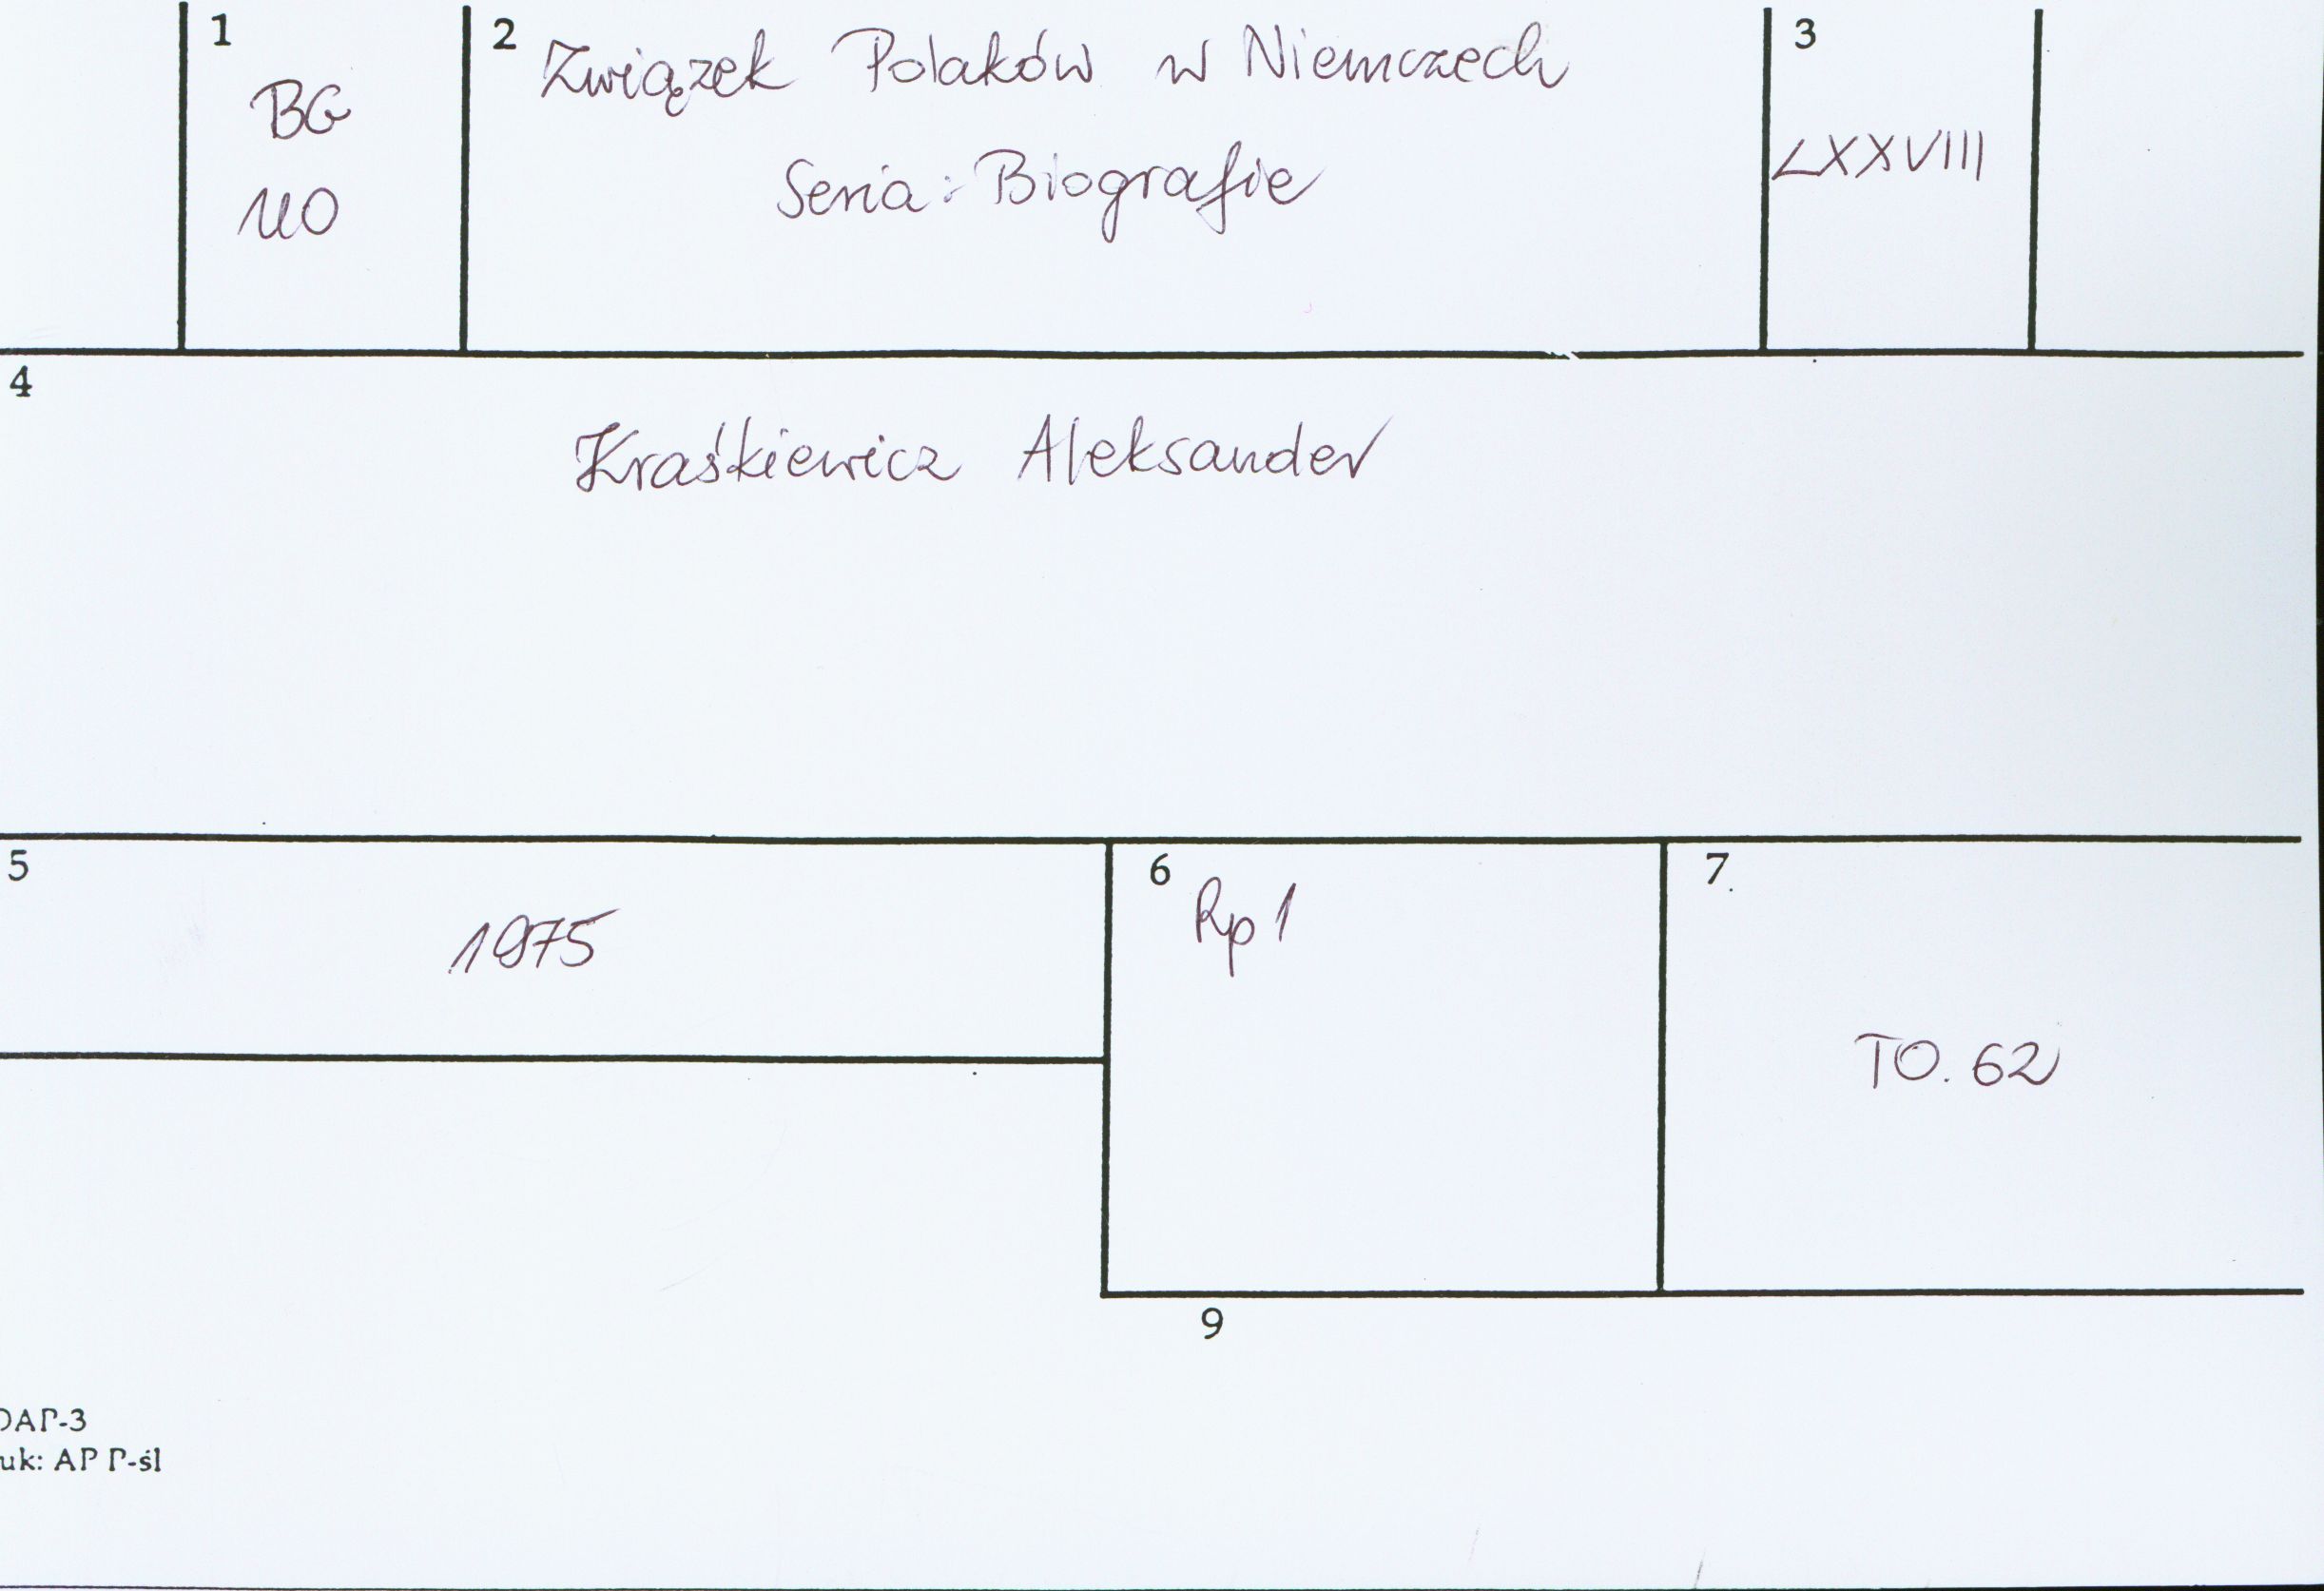 1
BG
UO
2
Związek Polaków w Niemczech
Seria: Biografie
3
LXXVIII
4
Kraśkiewicz Aleksander
5
1975
6
Rp 1
7.
TO. 62
9
DAP-3
uk: AP P-śl